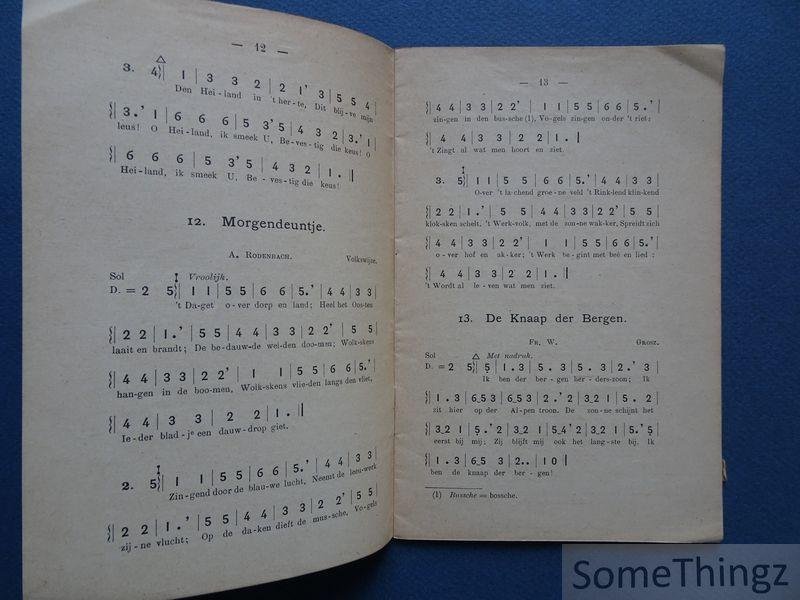 — 12 —
3. 4 | 1 | 3 3 2 | 2 1' 3 | 5 5 4 |
Den Hei-land in 't her-te, Dit blij-ve mijn
3.' 1 | 6 6 6 | 5 3' 5 | 4 3 2 | 3.' 1 |
leus! O Hei-land, ik smeek U, Be-ves-tig die keus! O
6 6 6 | 5 3' 5 | 4 3 2 | 1 . ||
Hei-land, ik smeek U, Be-ves-tig die keus!
12. Morgendeuntje.
A. Rodenbach. Volkswijze.
Sol Vroolijk.
D. = 2 5 | 1 1 | 5 5 | 6 6 | 5.' | 4 4 | 3 3 |
't Da-get o-ver dorp en land; Heel het Oos-ten
2 2 | 1.' | 5 5 | 4 4 | 3 3 | 2 2' | 5 5 |
laait en brandt; De be-dauw-de wei-den doo-men; Wolk-skens
4 4 | 3 3 | 2 2' | 1 1 | 5 5 | 6 6 | 5.' |
han-gen in de boo-men, Wolk-skens vlie-den langs den vliet,
4 4 | 3 3 | 2 2 | 1 . ||
Ie-der blad-je een dauw-drop giet.
2. 5 | 1 1 | 5 5 | 6 6 | 5.' | 4 4 | 3 3 |
Zin-gend door de blau-we lucht, Neemt de leeu-werk
2 2 | 1.' | 5 5 | 4 4 | 3 3 | 2 2' | 5 5
zij-ne vlucht; Op de da-ken dieft de mus-sche, Vo-gels
— 13 —
4 4 | 3 3 | 2 2' | 1 1 | 5 5 | 6 6 | 5.' |
zin-gen in den bus-sche (1), Vo-gels zingen on-der 't riet;
4 4 | 3 3 | 2 2 | 1 . ||
't Zingt al wat men hoort en ziet.
3. 5 | 1 1 | 5 5 | 6 6 | 5.' | 4 4 | 3 3
O-ver 't la-chend groe-ne veld 't Rink-lend klin-kend
2 2 | 1.' | 5 5 | 4 4 | 3 3 | 2 2' | 5 5
klok-sken schelt, 't Werk-volk, met de zon-ne wak-ker, Spreidt zich
4 4 | 3 3 | 2 2' | 1 1 | 5 5 | 6 6 | 5.' |
o-ver hof en ak-ker; 't Werk be-gint met beê en lied;
4 4 | 3 3 | 2 2 | 1 . ||
't Wordt al le-ven wat men ziet.
13. De Knaap der Bergen.
Fr. W. Grosz.
Sol Met nadruk.
D. = 2 5 | 5 | 1 . 3 | 5 . 3 | 5 . 3 | 2 .' 3 |
Ik ben der ber-gen her-ders-zoon; Ik
1 . 3 | 6 5 3 | 6 5 3 | 2 .' 2 | 3 2 1 | 5 . 2 |
zit hier op der Al-pen troon. De zon-ne schijnt het
3 2 1 | 5 .' 2 | 3 2 1 | 5 . 2 | 3 2 1 | 5 .' 5
eerst bij mij; Zij blijft mij ook het lang-ste bij. Ik
1 . 3 | 6 5 3 | 2 . . | 1 0 ||
ben de knaap der ber-gen!
(1) Bussche = bossche.
SomeThingz